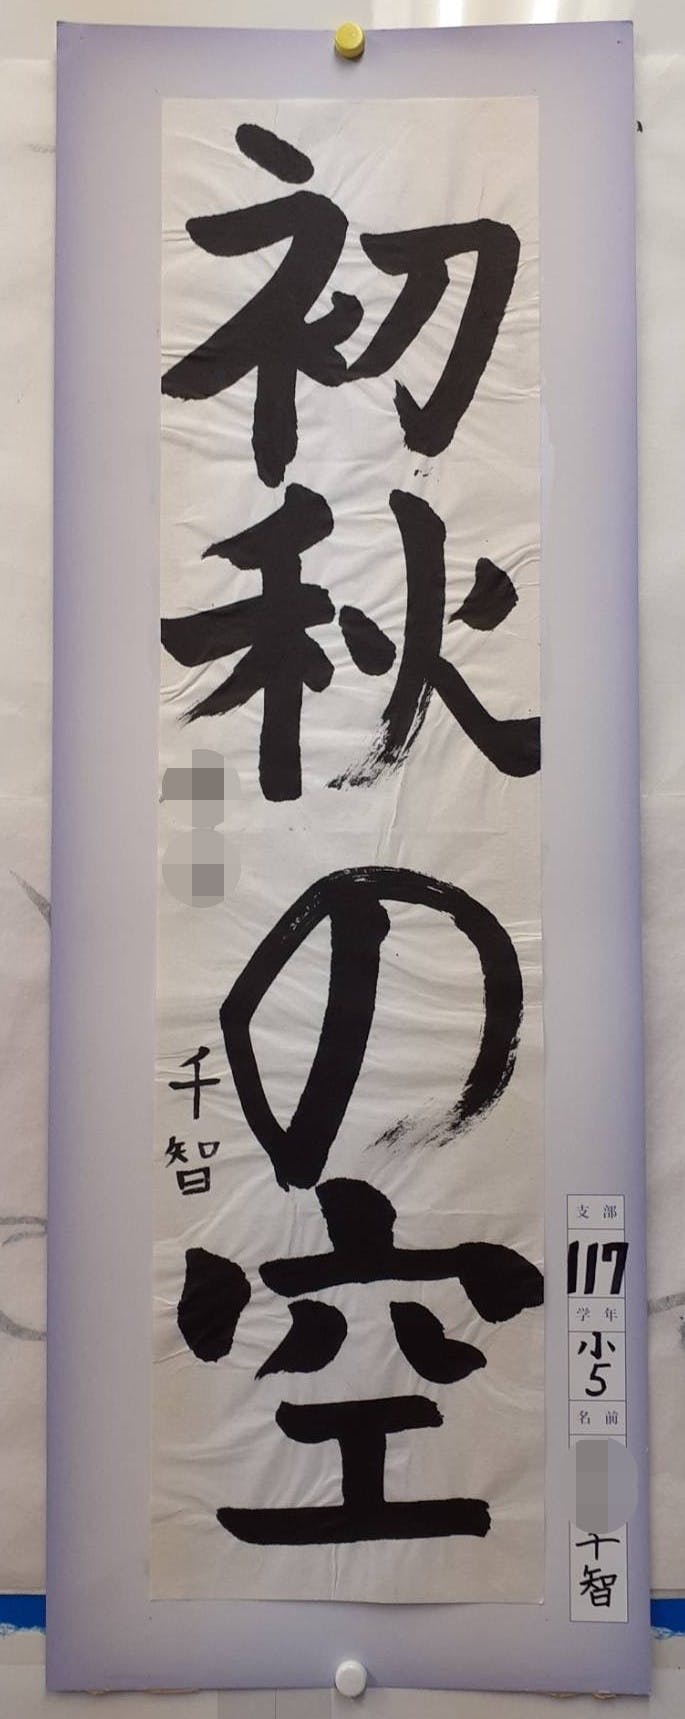 初秋の空
千智
支部
117
学年
小5
名前
千智